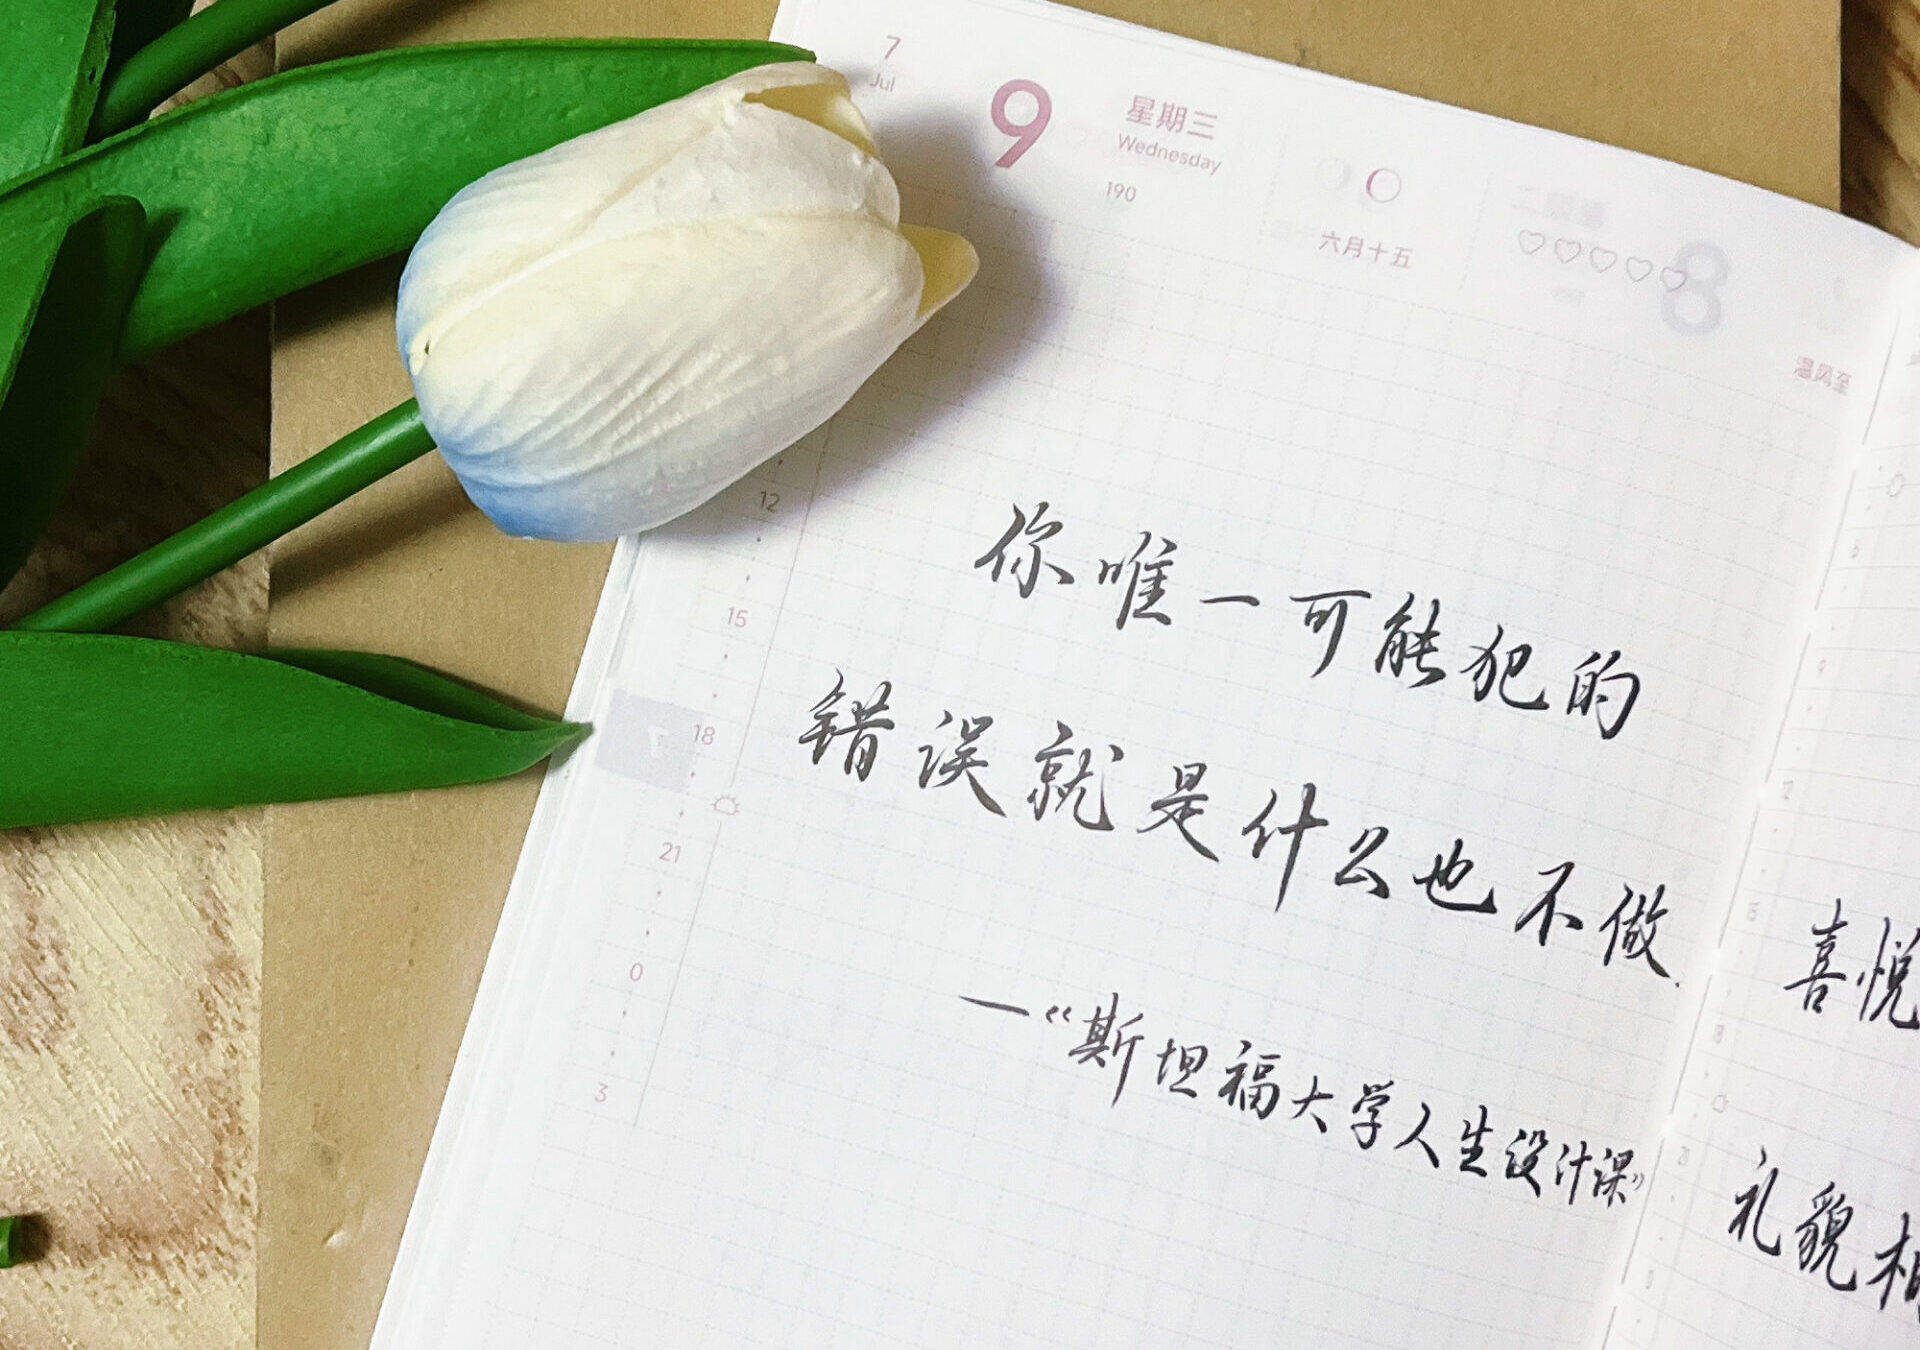 7
Jul
9
星期三
Wednesday
190
六月十五
8
温风至
12
15
18
21
0
3
你唯一可能犯的
错误就是什么也不做.
—《斯坦福大学人生设计课》
喜悦
礼貌相